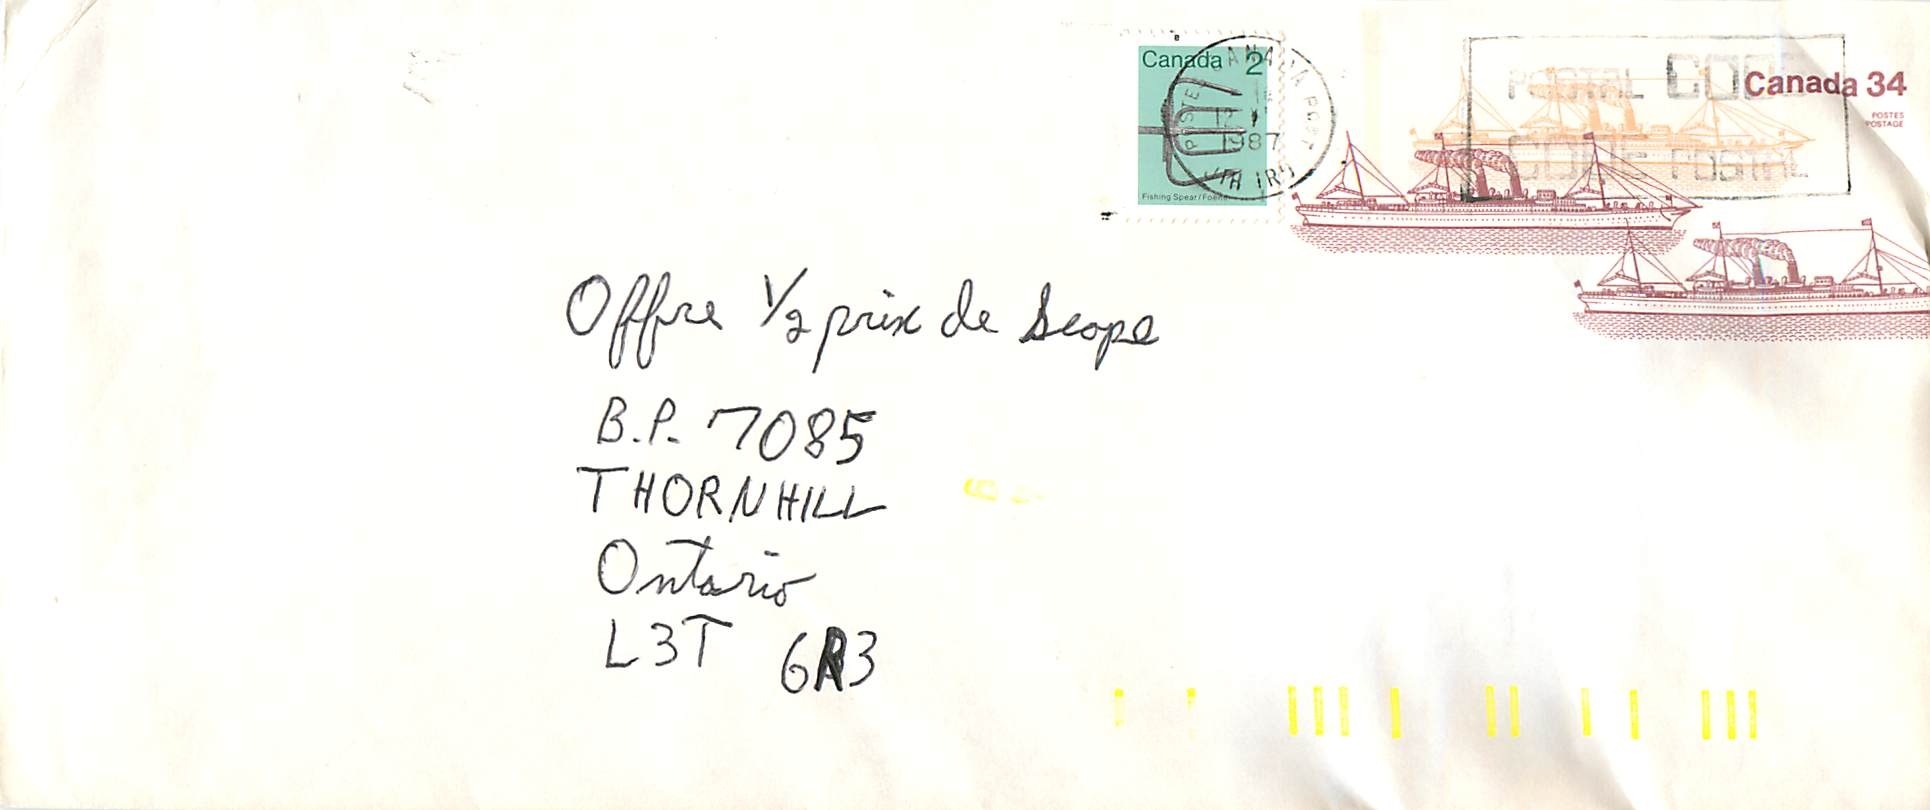 Canada 2
Fishing Spear/Foëne
CANADA POST
POSTES
1987
POSTAL CODE
CODE POSTAL
Canada 34
POSTES
POSTAGE
Offre 1/2 prix de Scope
B.P. 7085
THORNHILL
Ontario
L3T 6R3